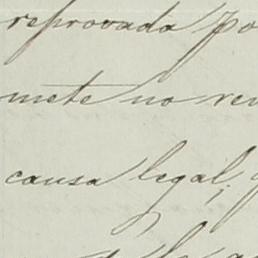 reprovada po
mete no re
causa legal;